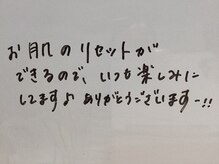 お肌のリセットが
できるので、いつも楽しみに
してます♪ ありがとうございますー!!